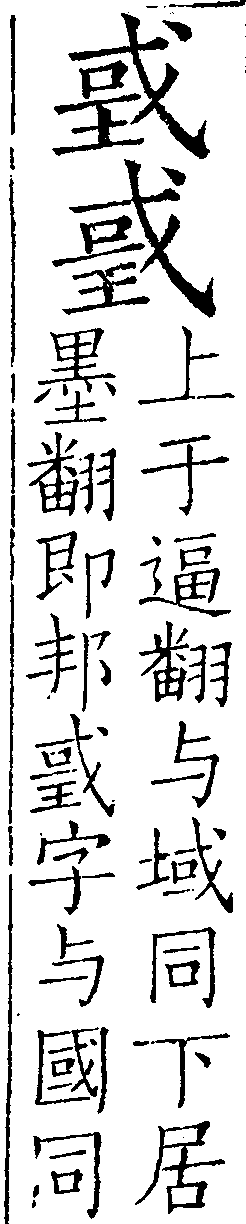 上于逼翻与域同下居
墨翻即邦字与國同